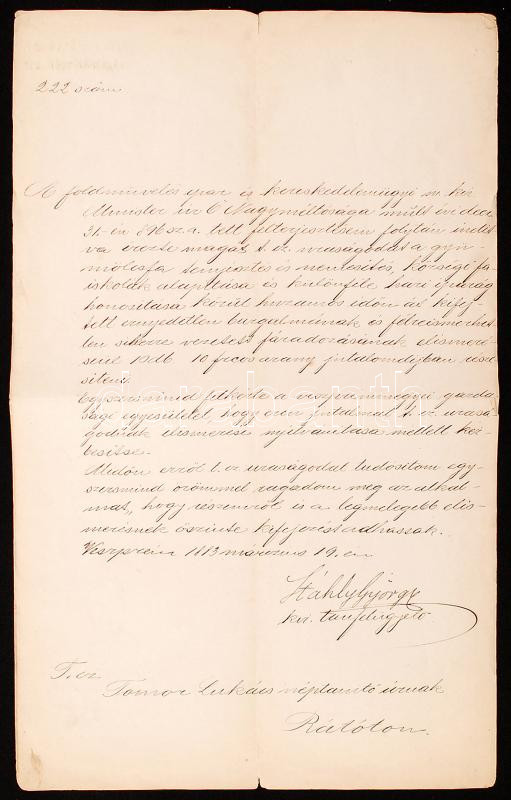 222 szám.
A földmivelés ipar és kereskedelemügyi m. kir
Minister úr Ő Nagyméltósága múlt évi dec.
31-én 896 sz. a. tett felterjesztésem folytán indít-
va érezte magát t. cz. uraságodat a gyü-
mölcsfa tenyésztés és nemesítés, községi fa-
iskolák alapítása és különféle házi iparág
honosítása körül huzamos időn át kifej-
tett ernyedetlen buzgalmának és félreismerhet-
len sikerre vezetett fáradozásának elismeré-
seül 10 db 10 frcos arany jutalomdíjban része-
síteni.
Egyszersmind felkérte a veszprémmegyei gazda-
sági egyesületet hogy ezen jutalmat t. cz. urasá-
godnak elismerése nyilvánítása mellett kéz-
besítse.
Midőn erről t. cz uraságodat tudósítom egy-
szersmind örömmel ragadom meg az alkal-
mat, hogy részemről is a legmelegebb elis-
merésnek őszinte kifejezést adhassak.
Veszprém 1883 március 19. én
Stáhly György
kir. tanfelügyelő.
T. cz
Tomor Lukács néptanító úrnak
Rátóton.
darabanth